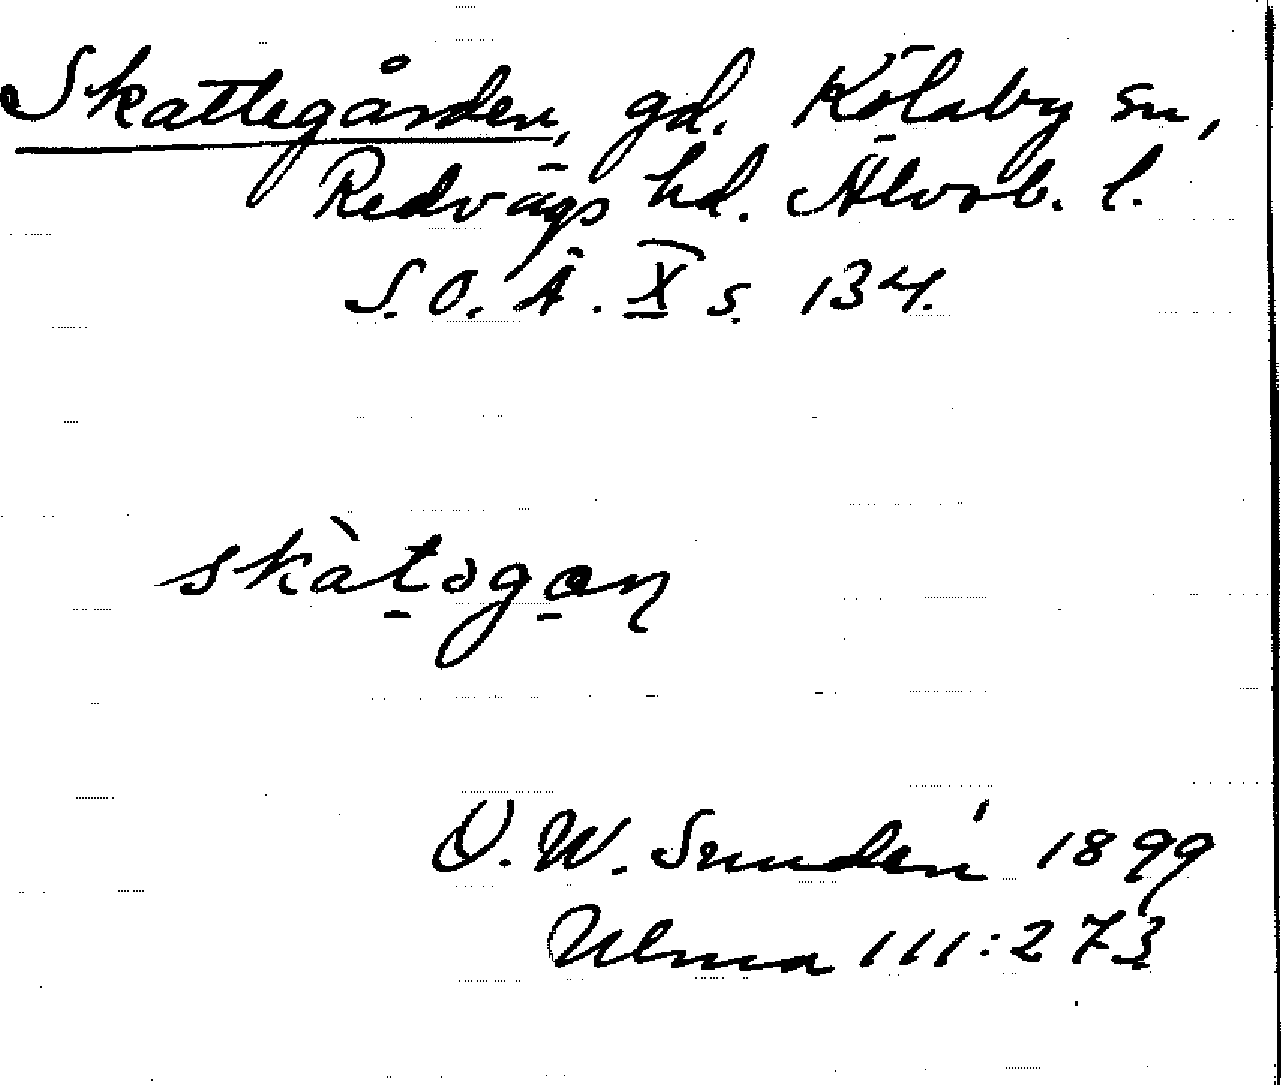 Skattegården, gd. Kölaby sn,
Redvägs hd. Älvsb. l.
S. O. Ä. X s. 134.
skàtəgan
D. W. Sundén 1899
Ulma 111:273